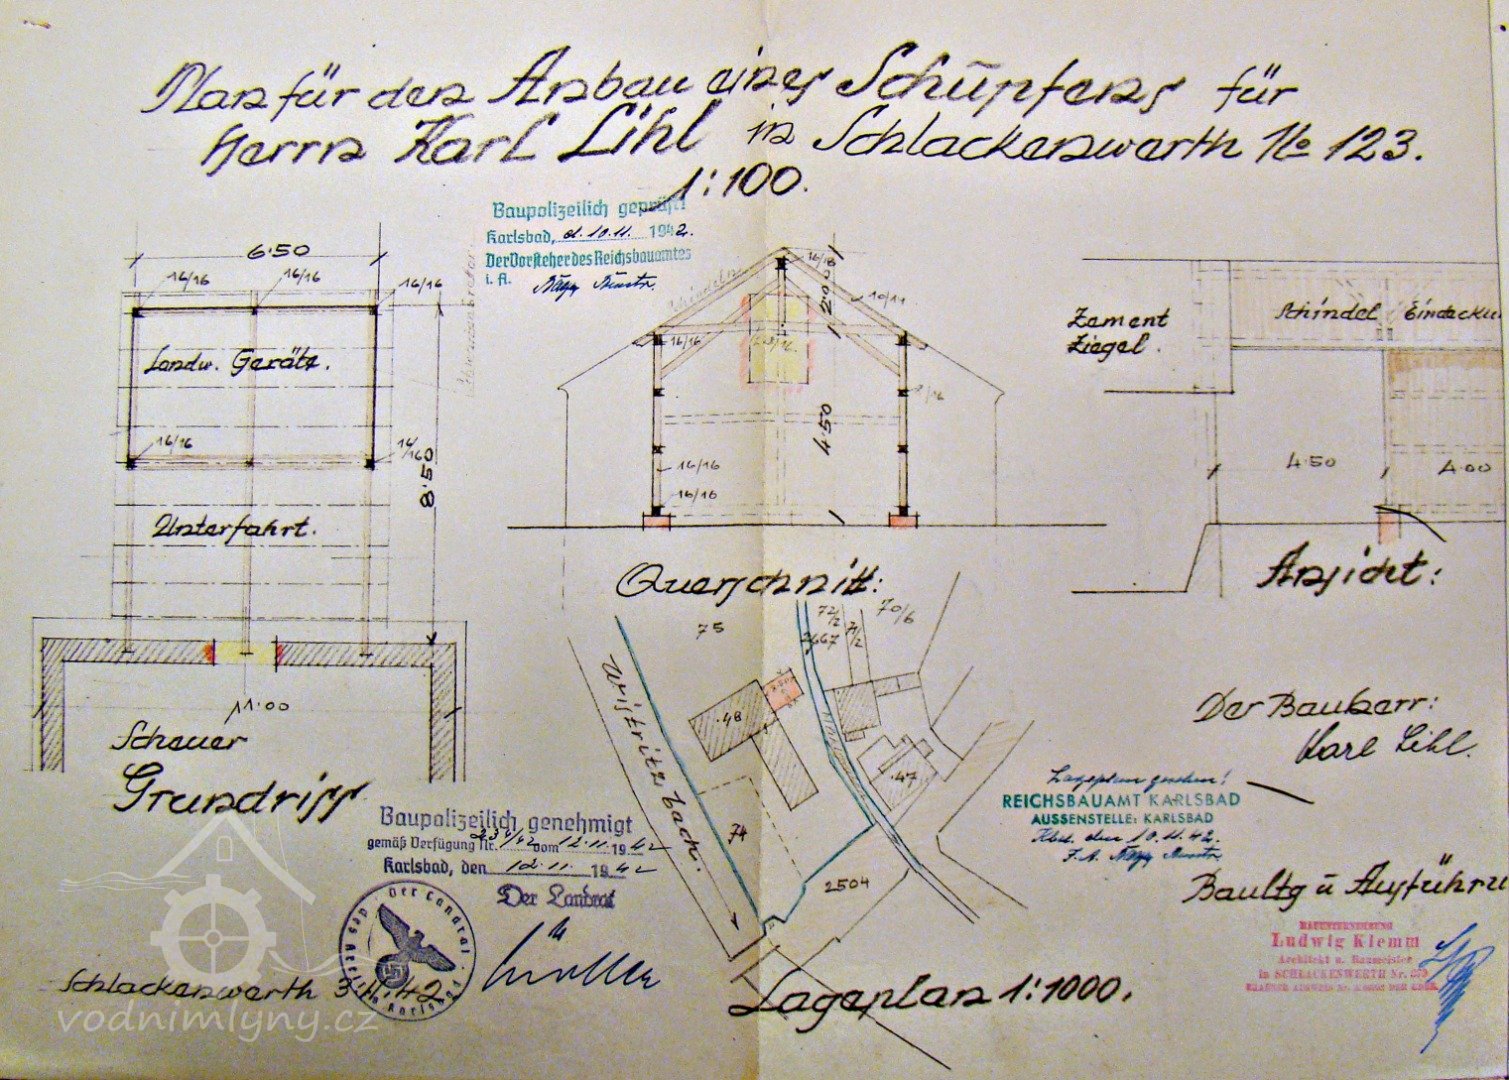 Plan für den Anbau eines Schupfens für
Herrn Karl Lihl in Schlackenwerth No 123.
1:100.
Baupolizeilich geprüft!
Karlsbad, d. 10.11. 1942.
Der Vorsteher des Reichsbauamtes
i. A.
6·50
16/16 16/16 16/16
Landw. Geräte.
16/16 16/16
8·50
Unterfahrt.
11·00
Scheuer
Grundriss
Schindeln
16/18
2·00
10/11
16/16
4·50
16/16
16/16
Querschnitt:
Zement
Ziegel.
Schindel Eindecku
4·50
4·00
Ansicht:
75
72/2
71/2
70/6
2667
·48
·47
74
2504
Wistritzbach.
Lageplan 1:1000.
Der Bauherr:
Karl Lihl.
Lageplan gesehen!
REICHSBAUAMT KARLSBAD
AUSSENSTELLE: KARLSBAD
Kbd. den 10.11.42.
I.A.
Baultg u Ausführu
BAUUNTERNEHMUNG
Ludwig Klemm
Architekt u. Baumeister
in SCHLACKENWERTH Nr. 379
Baupolizeilich genehmigt
gemäß Verfügung Nr. vom 12.11. 1942
Karlsbad, den 12.11. 1942
Der Landrat
Der Landrat
Schlackenwerth 3.11.42
vodnimlyny.cz